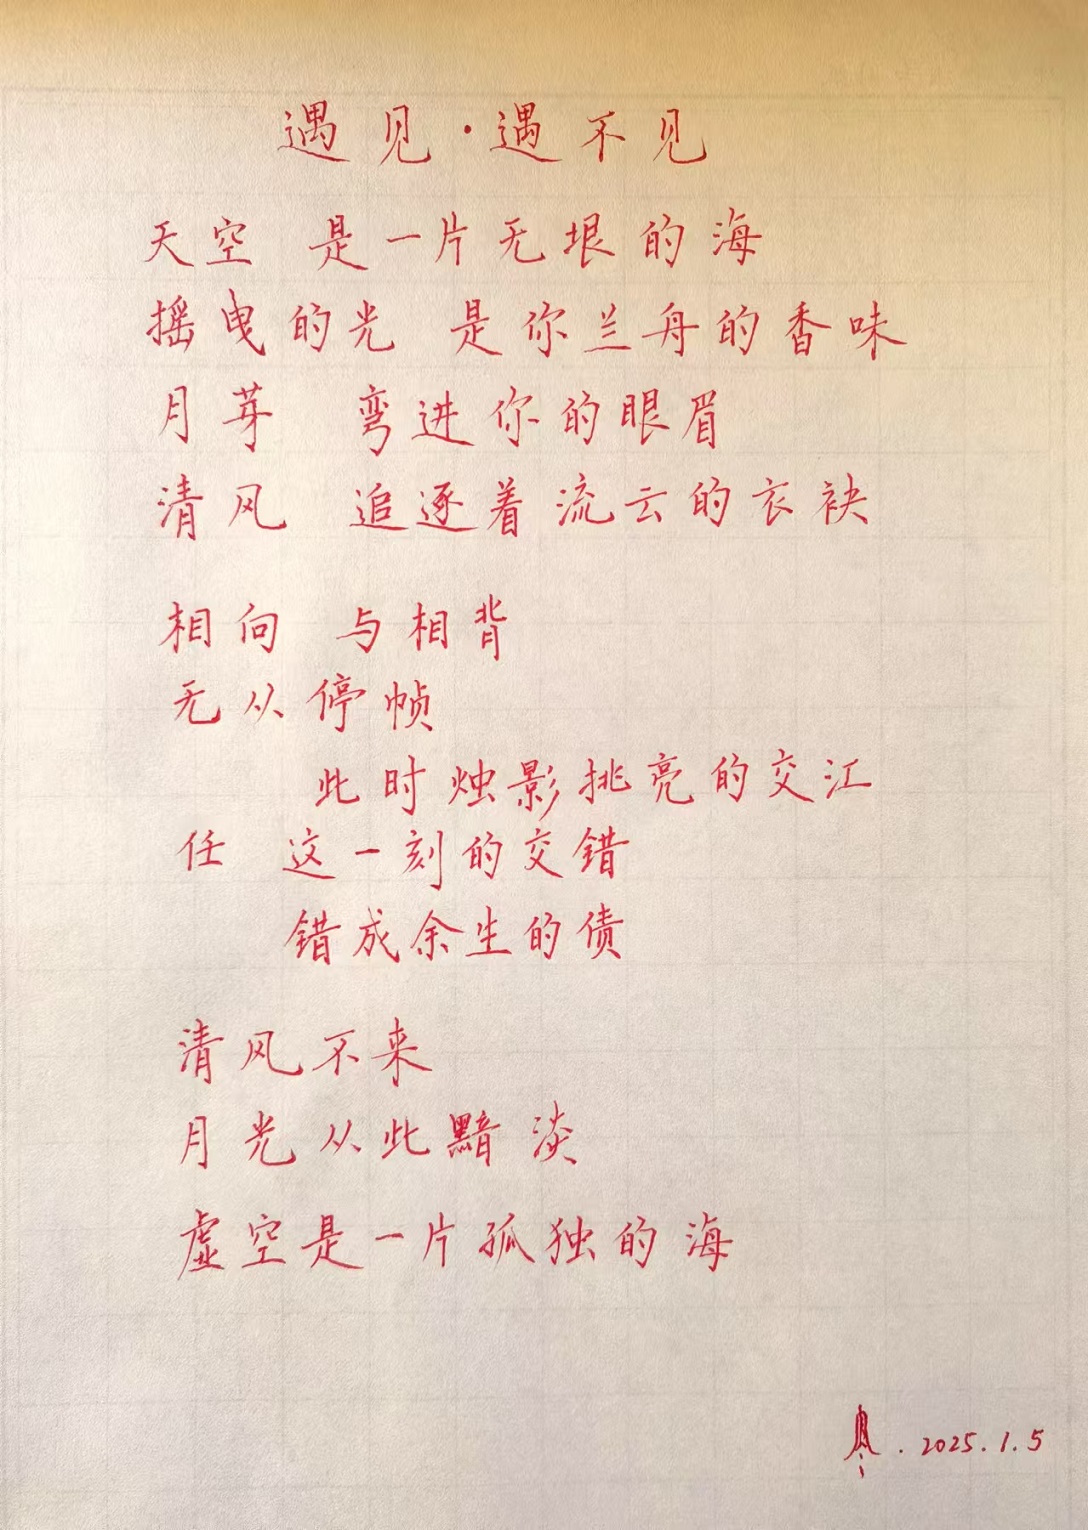 遇见·遇不见
天空 是一片无垠的海
摇曳的光 是你兰舟的香味
月芽 弯进你的眼眉
清风 追逐着流云的衣袂
相向 与相背
无从停帧
此时烛影挑亮的交江
任 这一刻的交错
错成余生的债
清风不来
月光从此黯淡
虚空是一片孤独的海
. 2025.1.5